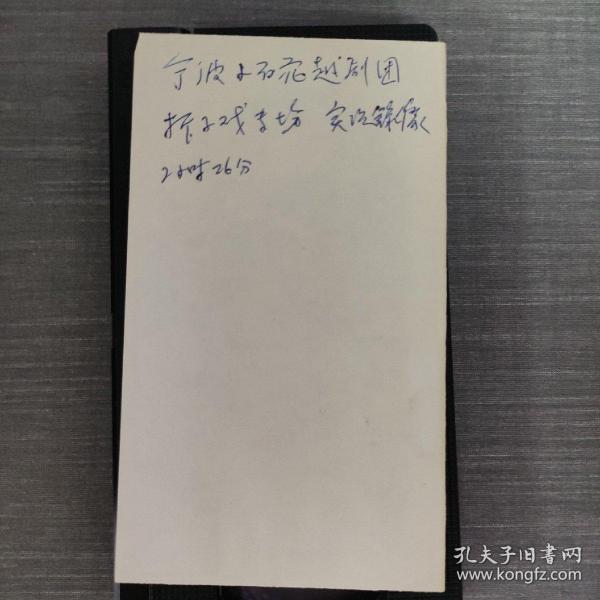 宁波小百花越剧团
折子戏专场 实况录像
2小时26分
孔夫子旧书网
www.kongfz.com